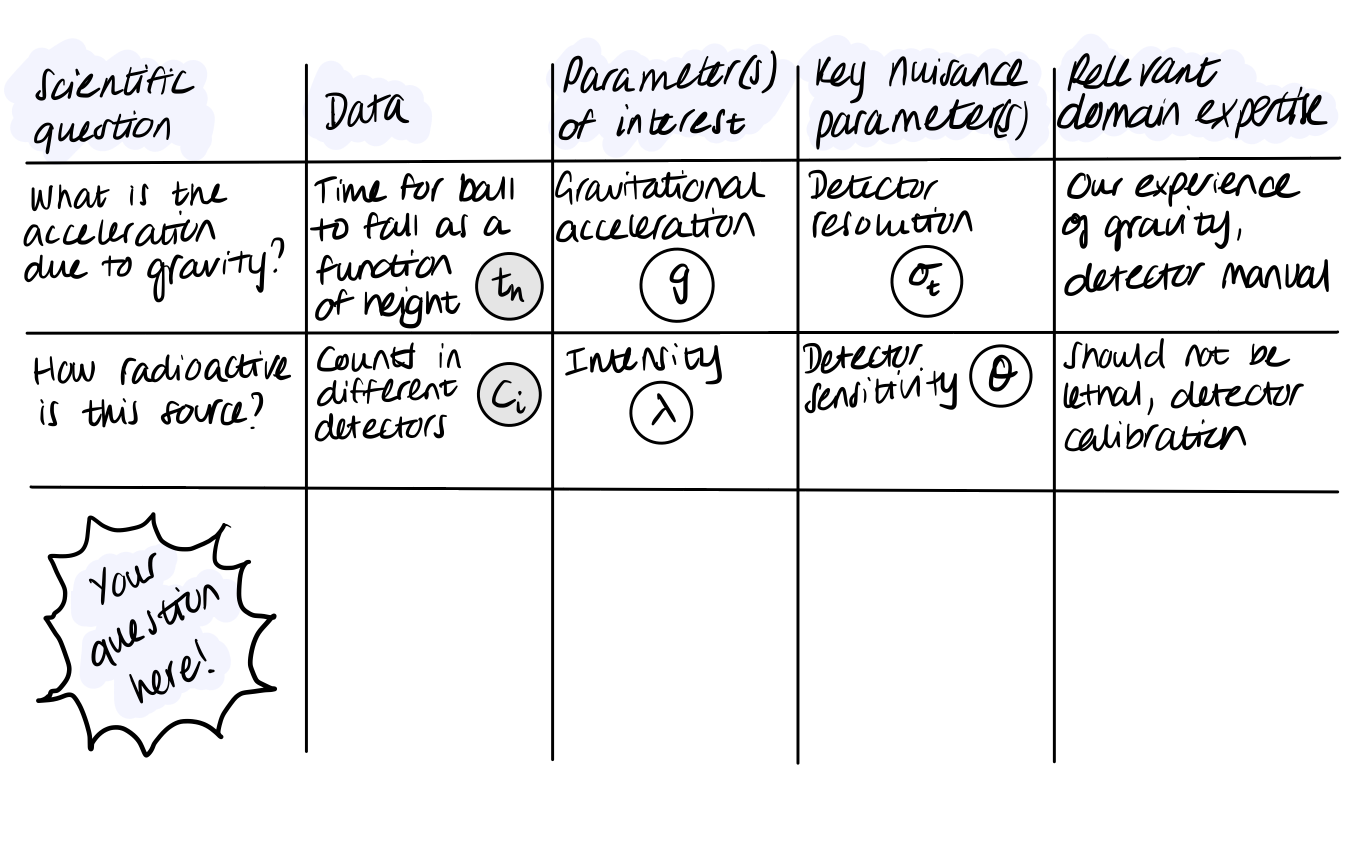 Scientific
question
Data
Parameter(s)
of interest
Key nuisance
parameter(s)
Relevant
domain expertise
What is the
acceleration
due to gravity?
Time for ball
to fall as a
function
of height
tn
Gravitational
acceleration
g
Detector
resolution
σt
Our experience
of gravity,
detector manual
How radioactive
is this source?
Counts in
different
detectors
Ci
Intensity
λ
Detector
sensitivity
θ
Should not be
lethal, detector
calibration
Your
question
here!